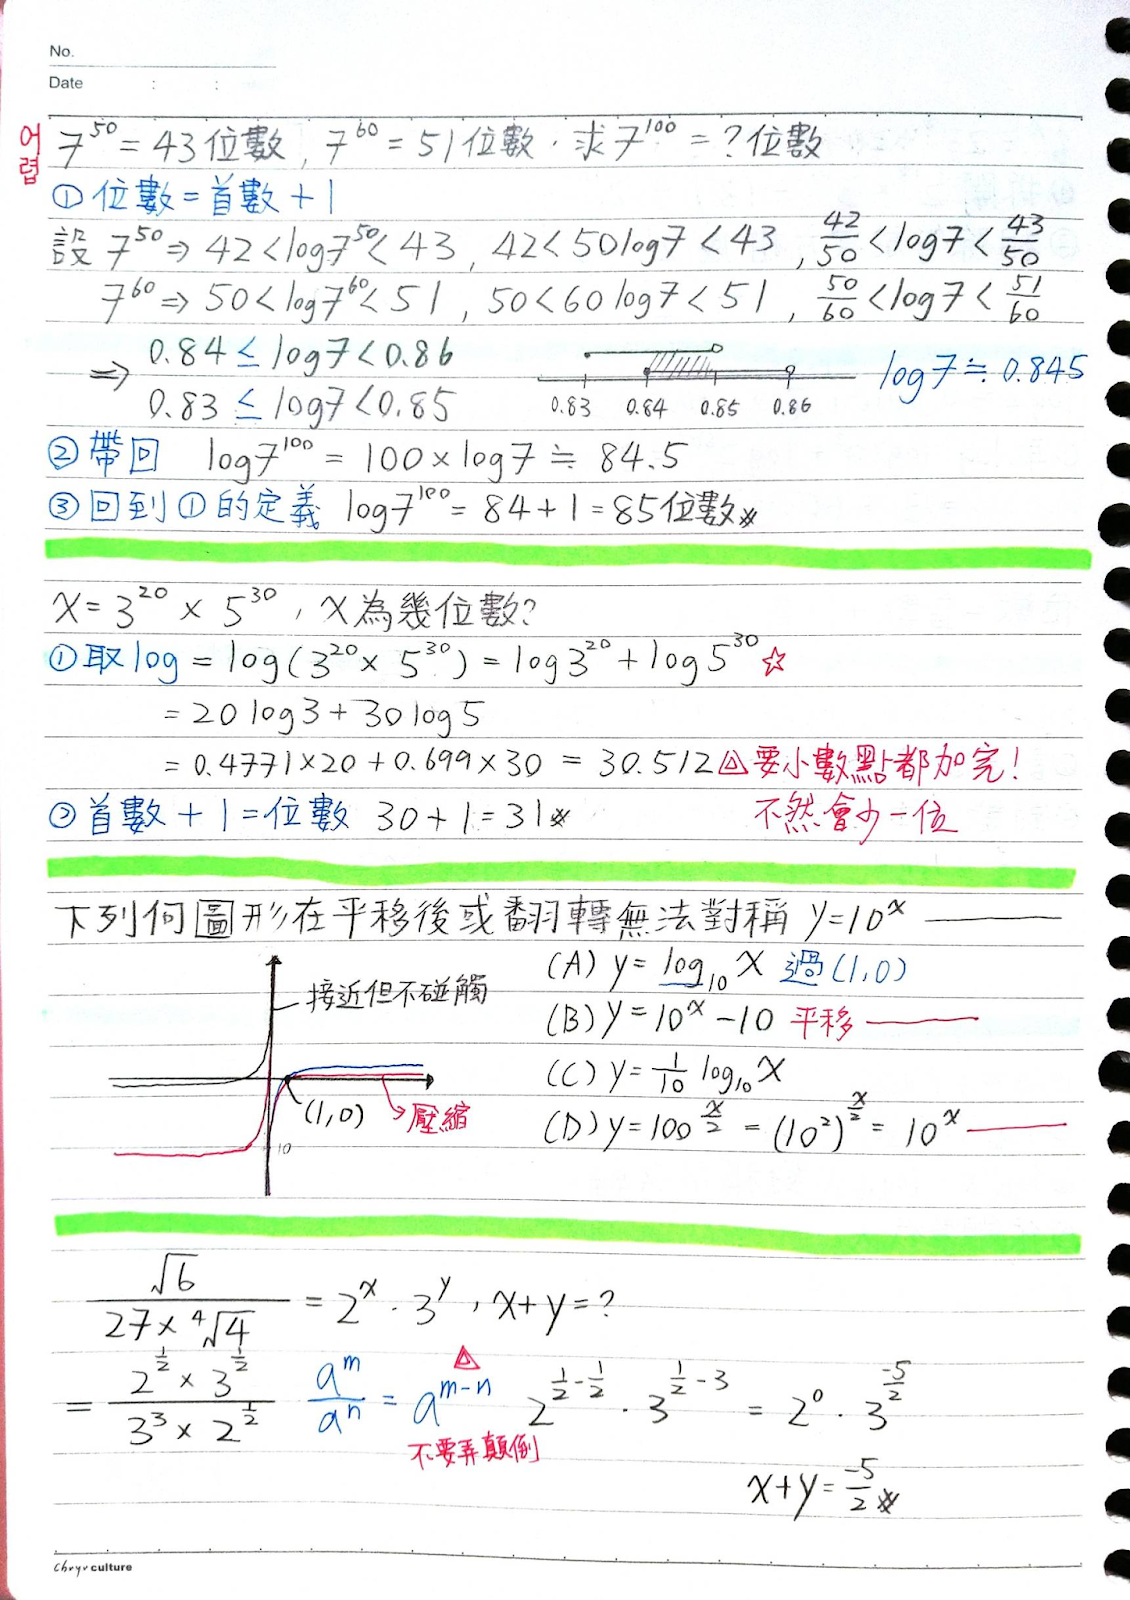 No.
Date : :
어렵
7^50 = 43位數, 7^60 = 51位數. 求7^100 = ?位數
①位數=首數+1
設 7^50 ⇒ 42<log7^50<43, 42<50log7<43, 42/50<log7<43/50
7^60 ⇒ 50<log7^60<51, 50<60log7<51, 50/60<log7<51/60
⇒ 0.84 ≤ log7<0.86
0.83 ≤ log7<0.85
0.83 0.84 0.85 0.86
log7≒0.845
②帶回 log7^100 = 100×log7 ≒ 84.5
③回到①的定義 log7^100 = 84+1=85位數※
x=3^20 × 5^30, x為幾位數?
①取log = log(3^20 × 5^30) = log3^20 + log5^30 ☆
= 20log3+30log5
= 0.4771×20+0.699×30 = 30.512 △要小數點都加完!
不然會少一位
②首數+1=位數 30+1=31※
下列何圖形在平移後或翻轉無法對稱 y=10^x
接近但不碰觸
(1,0)
壓縮
-10
(A) y=log₁₀x 過(1,0)
(B) y=10^x-10 平移
(C) y=1/10 log₁₀x
(D) y=100^(x/2) = (10²)^(x/2) = 10^x
√6/(27×⁴√4) = 2^x · 3^y, x+y=?
= (2^(1/2) × 3^(1/2))/(3³ × 2^(1/2)) a^m/a^n = a^(m-n) △ 2^(1/2-1/2) · 3^(1/2-3) = 2^0 · 3^(-5/2)
不要弄顛倒
x+y=-5/2※
Chuyu culture